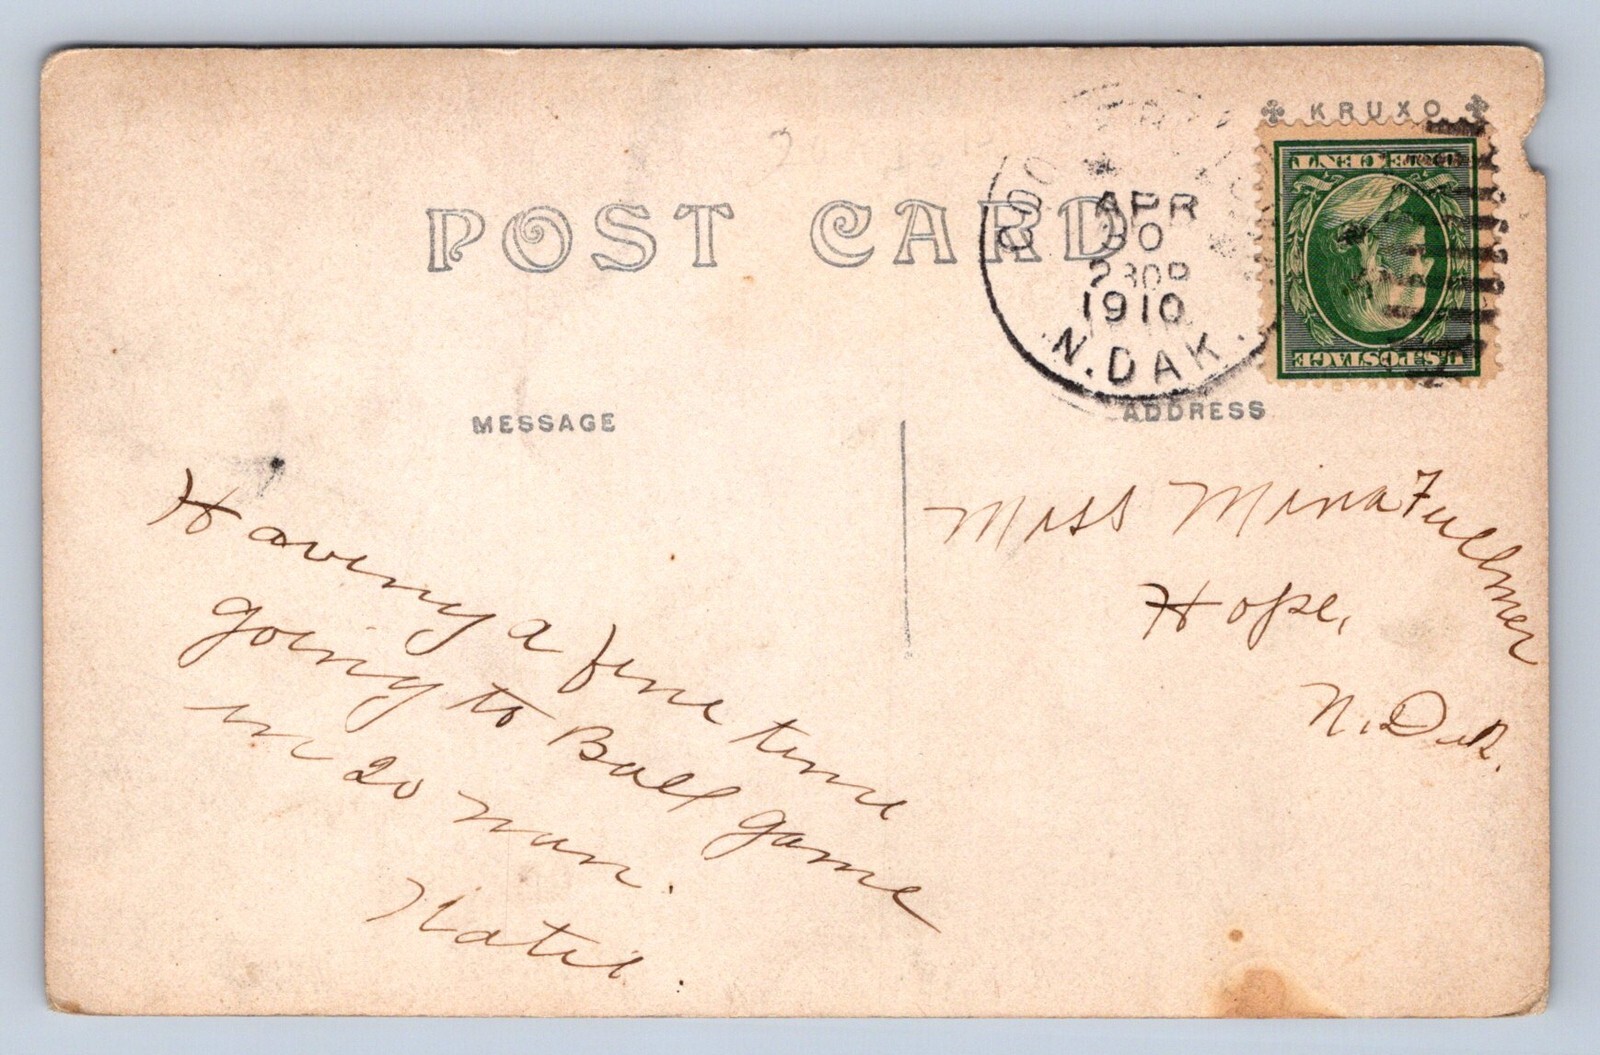 KRUXO
POST CARD
APR
30
230P
1910
N. DAK.
ONE CENT
U.S. POSTAGE
MESSAGE
ADDRESS
Having a fine time
going to Ball game
in 20 min.
Miss Mina Fullmer
Hope,
N. Dak.